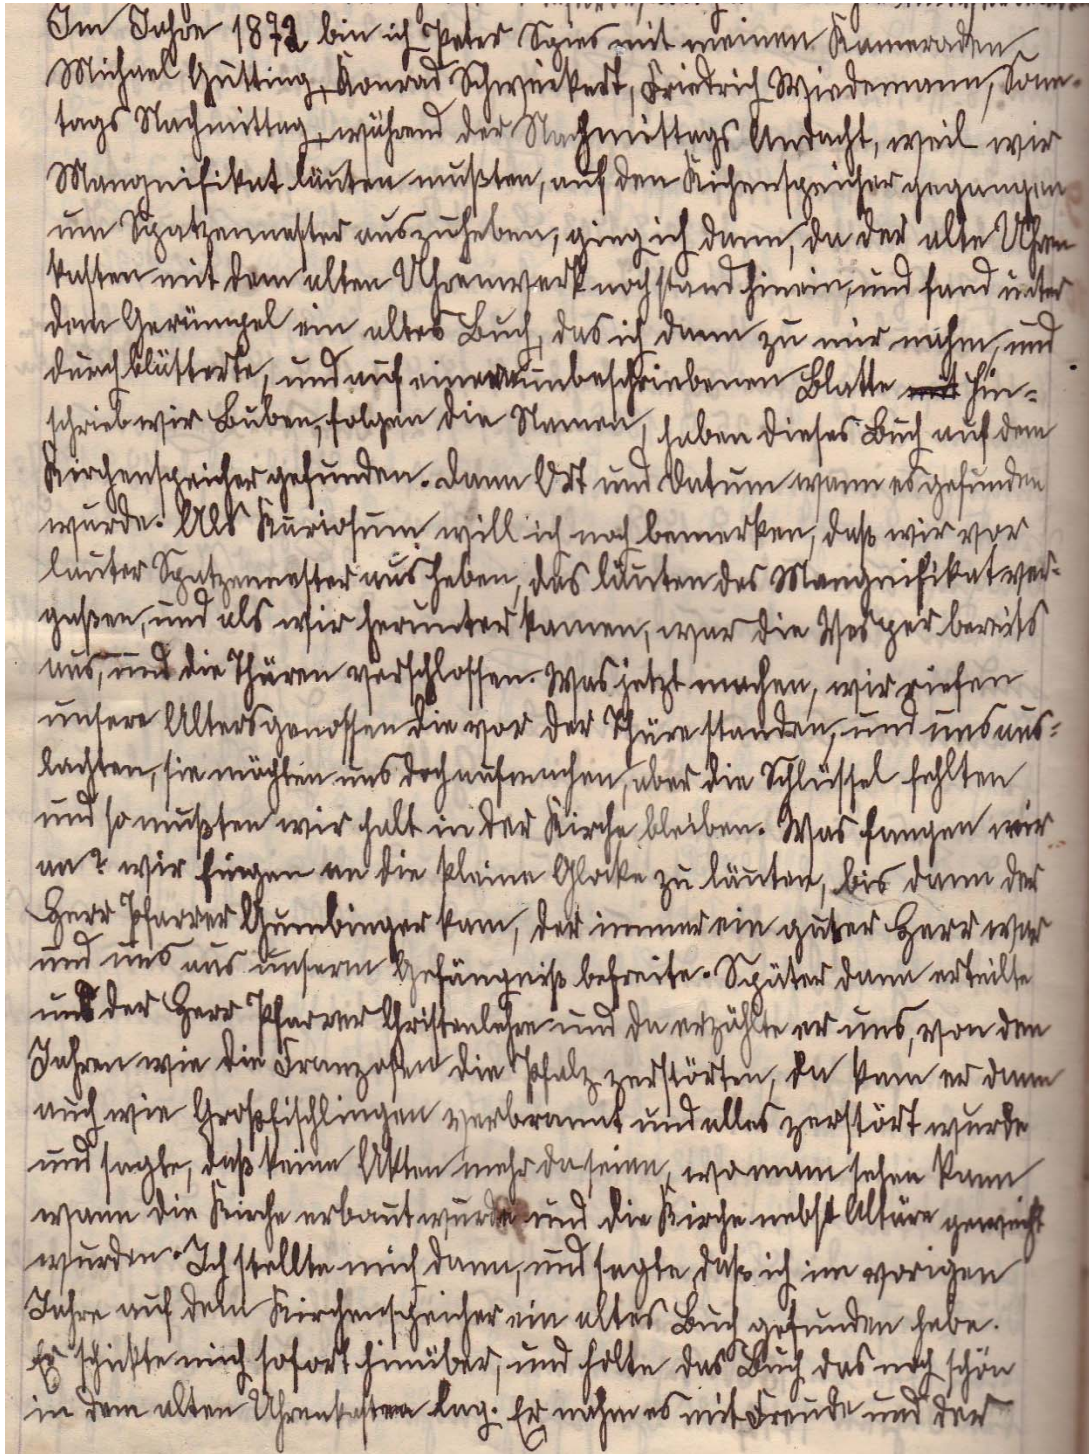 Im Jahre 1872 bin ich Peter Spies mit meinen Kameraden
Michael Gutting, Konrad Schweikert, Friedrich Wiedemann, Sonn-
tags Nachmittag, während der Nachmittags Andacht, weil wir
Mangnifikat läuten mußten, auf den Kichenspeicher gegangen
um Spatzennester auszuheben, ging ich dann, da der alte Uhren
kasten mit dem alten Uhrenwerk noch stand hinein, und fand unter
dem Gerümpel ein altes Buch, das ich dann zu mir nahm, und
durchblätterte, und auf einem unbeschriebenen Blatte mit hin-
schrieb wir Buben, folgen die Namen, haben dieses Buch auf dem
Kirchenspeicher gefunden. Dann Ort und Datum wann es gefunden
wurde. Als Kuriosum will ich noch bemerken, daß wir vor
lauter Spatzennester aus heben, das läuten des Mangnifikat ver-
gaßen, und als wir herunter kamen, war die Vesper bereits
aus, und die Thüren verschlossen. Was jetzt machen, wir riefen
unsere Altersgenossen die vor der Thüre standen, und uns aus-
lachten, sie möchten uns doch aufmachen, aber die Schlüssel fehlten
und so mußten wir halt in der Kirche bleiben. Was fangen wir
an? wir fingen an die kleine Glocke zu läuten, bis dann der
Herr Pfarrer Gumbinger kam, der immer ein guter Herr war
und uns aus unserm Gefängniß befreite. Später dann erteilte
uns der Herr Pfarrer Christenlehre und da erzählte er uns, von den
Jahren wie die Franzosen die Pfalz zerstörten, da kam er dann
auch wie Großfischlingen verbrannt und alles zerstört wurde
und sagte, daß keine Akten mehr da seien, wo mann sehen kann
wann die Kirche erbaut wurde und die Kirche nebst Altäre geweiht
wurden. Ich stellte mich dann, und sagte daß ich im vorigen
Jahre auf dem Kirchenspeicher ein altes Buch gefunden habe.
Er schickte mich sofort hinüber, und holte das Buch das noch schön
in dem alten Uhrenkasten lag. Er nahm es mit Freude und der